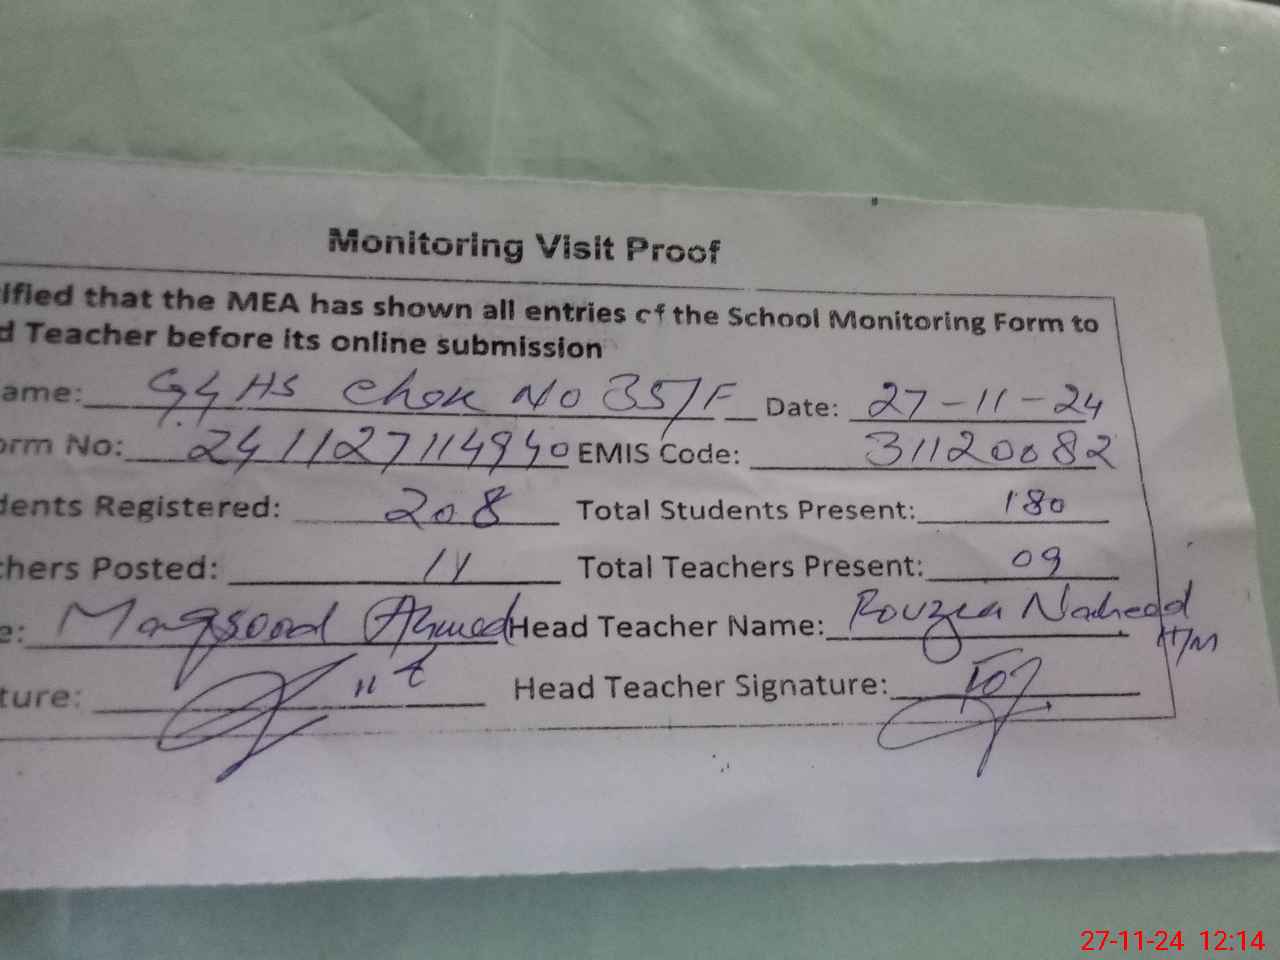 Monitoring Visit Proof
ified that the MEA has shown all entries of the School Monitoring Form to
d Teacher before its online submission
ame: GGHS Chak No 35/F Date: 27-11-24
orm No: 241127114940 EMIS Code: 31120082
dents Registered: 208 Total Students Present: 180
chers Posted: 11 Total Teachers Present: 09
e: Maqsood Ahmed Head Teacher Name: Naheed
H/M
ture: Head Teacher Signature:
27-11-24 12:14